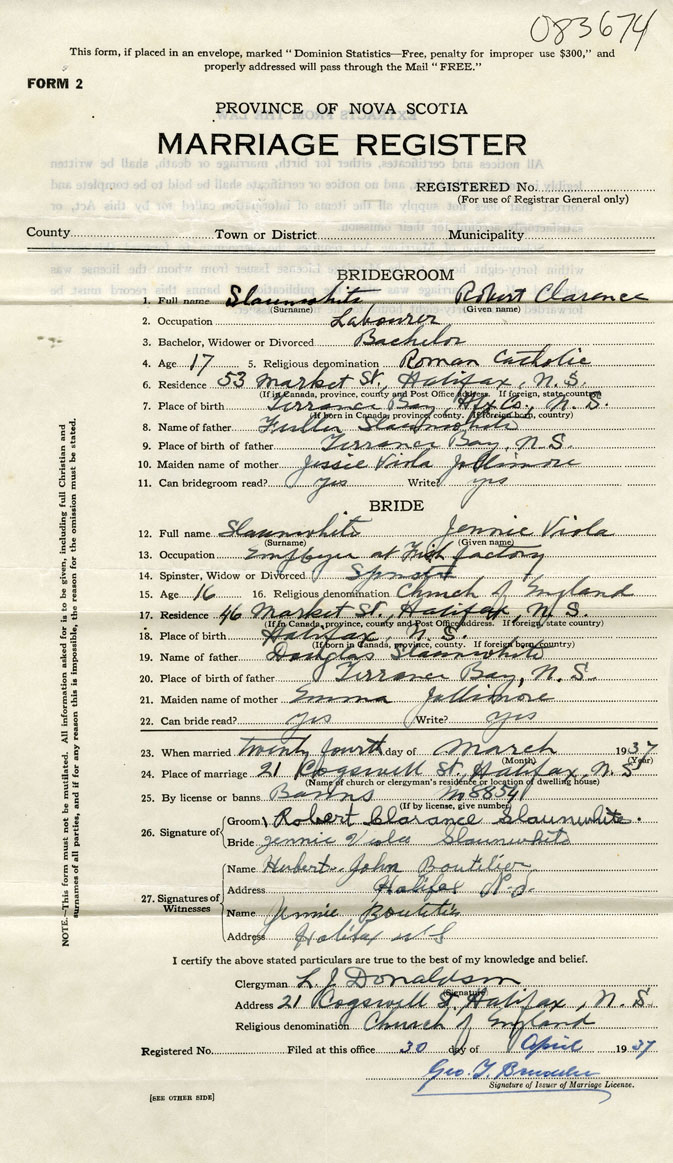 083674
This form, if placed in an envelope, marked "Dominion Statistics—Free, penalty for improper use $300," and
properly addressed will pass through the Mail "FREE."
FORM 2
PROVINCE OF NOVA SCOTIA
MARRIAGE REGISTER
REGISTERED No.
(For use of Registrar General only)
County Town or District Municipality
BRIDEGROOM
1. Full name Slaunwhite Robert Clarence
(Surname) (Given name)
2. Occupation Labourer
3. Bachelor, Widower or Divorced Bachelor
4. Age 17 5. Religious denomination Roman Catholic
6. Residence 53 Market St., Halifax, N. S.
(If in Canada, province, county and Post Office address. If foreign, state country)
7. Place of birth Terrance Bay, Hfx Co., N. S.
(If born in Canada, province, county. If foreign born, country)
8. Name of father Fuller Slaunwhite
9. Place of birth of father Terrance Bay, N. S.
10. Maiden name of mother Jessie Viola Jollimore
11. Can bridegroom read? yes Write? yes
BRIDE
12. Full name Slaunwhite Jennie Viola
(Surname) (Given name)
13. Occupation Employee at Fish factory
14. Spinster, Widow or Divorced Spinster
15. Age 16 16. Religious denomination Church of England
17. Residence 46 Market St., Halifax, N. S.
(If in Canada, province, county and Post Office address. If foreign, state country)
18. Place of birth Halifax, N. S.
(If born in Canada, province, county. If foreign born, country)
19. Name of father Douglas Slaunwhite
20. Place of birth of father Terrance Bay, N. S.
21. Maiden name of mother Emma Jollimore
22. Can bride read? yes Write? yes
23. When married twenty fourth day of March 1937
(Month) (Year)
24. Place of marriage 21 Cogswell St., Halifax, N. S
(Name of church or clergyman's residence or location of dwelling house)
25. By license or banns Banns M8854
(If by license, give number)
26. Signature of
Groom Robert Clarance Slaunwhite.
Bride Jennie Viola Slaunwhite
27. Signatures of Witnesses
Name Hubert John Boutilier
Address Halifax N.S.
Name Jennie Boutilier
Address Halifax N S
I certify the above stated particulars are true to the best of my knowledge and belief.
Clergyman L. J. Donaldson
(Signature)
Address 21 Cogswell St, Halifax, N. S.
Religious denomination Church of England
Registered No. Filed at this office 30 day of April 1937
Geo. T.
Signature of Issuer of Marriage License.
[SEE OTHER SIDE]
NOTE.—This form must not be mutilated. All information asked for is to be given, including full Christian and
surnames of all parties, and if for any reason this is impossible, the reason for the omission must be stated.